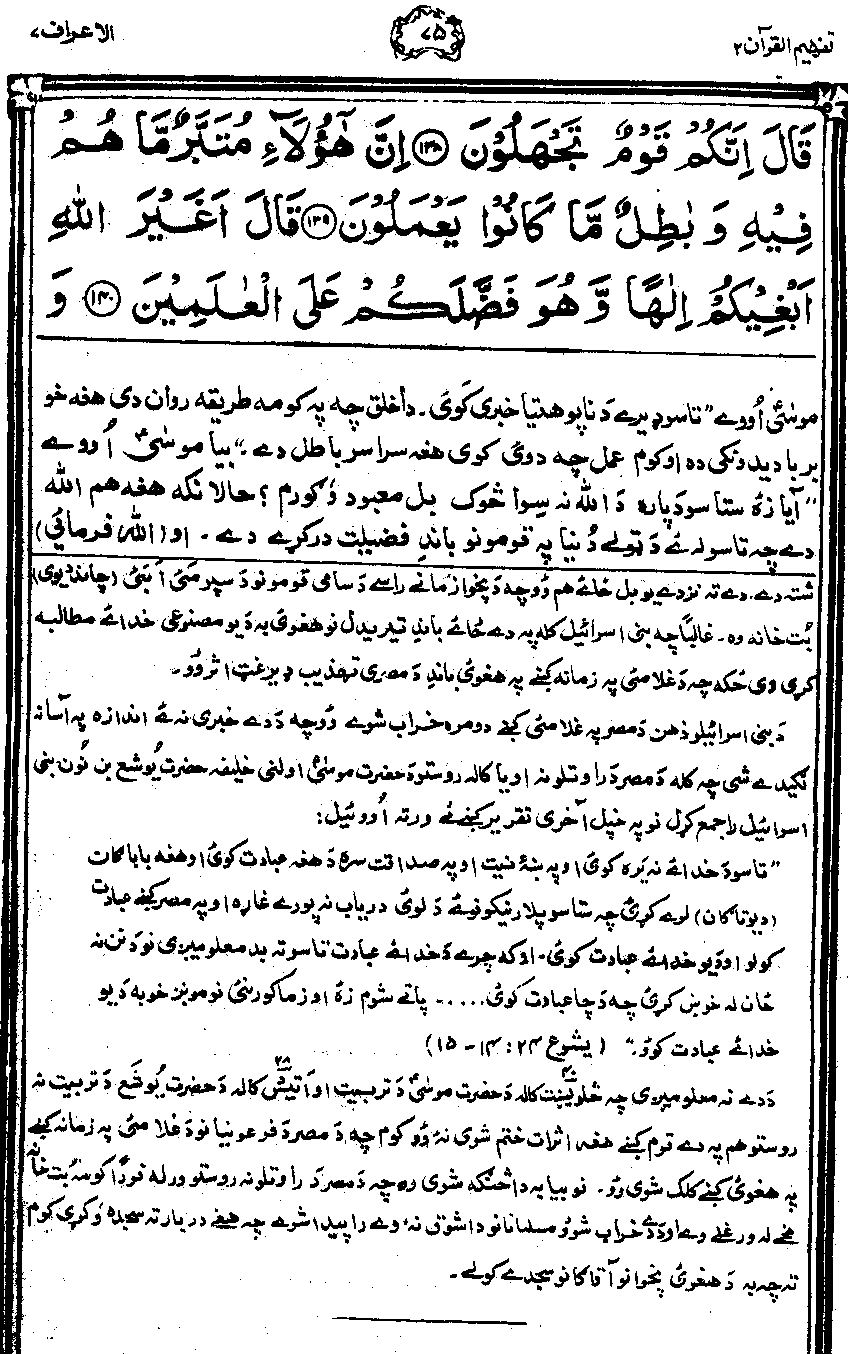 تفہیم القرآن ۲
۷۵
الاعراف ۷
قَالَ اِنَّكُمْ قَوْمٌ تَجْهَلُوْنَ ﴿۱۳۸﴾ اِنَّ هٰٓؤُلَآءِ مُتَبَّرٌ مَّا هُمْ
فِيْهِ وَ بٰطِلٌ مَّا كَانُوْا يَعْمَلُوْنَ ﴿۱۳۹﴾ قَالَ اَغَيْرَ اللّٰهِ
اَبْغِيْكُمْ اِلٰهًا وَّ هُوَ فَضَّلَكُمْ عَلَى الْعٰلَمِيْنَ ﴿۱۴۰﴾ وَ
موسٰیؑ اُووے "تاسو ډیرے دَ ناپوهتیا خبری کوَئ۔ دا خلق چه په کومه طریقه روان دی هغه خو
برباديدونکی ده او کوم عمل چه دوئ کوی هغه سراسر باطل دے۔" بیا موسٰیؑ اُووے
"آیا زهٔ ستاسو دَپاره دَ الله نه سِوا څوک بل معبود وُګورم؟ حالانکه هغه هم الله
دے چه تاسو له ئے دَ ټولے دُنیا په قومونو باندِ فضیلت درکړے دے۔ او (الله فرمائي)
شته دے۔ دے ته نزدے یو بل ځائے هم وُو چه دَ پخوا زمانے راسے دَ سامی قومونو دَ سپوږمئ اَبئ (چاند دیوی)
بُت خانه وه۔ غالباً چه بنی اسرائیل کله په دے ځائے باندِ تیریدل نو هغوئ به دَ یو مصنوعی خدائے مطالبه
کړی وی ځکه چه دَ غلامئ په زمانه کښے په هغوئ باندِ دَ مصری تهذیب ډیر غټ اثر وُو۔
دَ بنی اسرائیلو ذهن دَ مصر په غلامئ کښے دومره خراب شوے وُو چه دَ دے خبری نه ئے اندازه په آسانه
لګیدے شی چه کله دَ مصر دَ راوتلو نه اویا کاله روستو دَ حضرت موسٰیؑ اولنی خلیفه حضرت یُوشع بن نُون بنی
اسرائیل راجمع کړل نو په خپل آخری تقریر کښے ئے ورته اُووئیل:
"تاسو دَ خدائے نه یَره کوئ او په ښهٔ نیت او په صداقت سره دَ هغه عبادت کوئ او هغه باباګان
(دیوتاګان) لرے کړئ چه ستاسو پلار نیکونو ئے دَ لوئ دریاب نه پورے غاړه او په مصر کښے عبادت
کولو او دَ یو خدائے عبادت کوئ۔ او که چرے دَ خدائے عبادت تاسو ته بد معلومیږی نو دَ نن نه
ځان له خوښ کړئ چه دَ چا عبادت کوئ..... ۔ پاتے شوم زهٔ او زما کورنئ نو مونږ خو به دَ یو
خدائے عبادت کوؤ۔" (یشوع ۲۴: ۱۴ - ۱۵)
دَ دے نه معلومیږی چه څلویښت ۴۰ کاله دَ حضرت موسٰیؑ دَ تربیت او اتیش ۲۸ کاله دَ حضرت یُوشَع دَ تربیت نه
روستو هم په دے قوم کښے هغه اثرات ختم شوی نهٔ وُو کوم چه دَ مصر دَ فرعونیانو دَ غلامئ په زمانه کښے
په هغوئ کښے کلک شوی وُو۔ نو بیا به دا څنګه شوی وه چه دَ مصر دَ راوتلو نه روستو ورله فوراً کومه بُت خانه
مخے له ورغلے وے او دَ دے خراب شوو مسلمانانو دا شوق نهٔ وے را پیدا شوے چه هغے دربار ته سجده وُکړی کوم
ته چه به دَ هغوئ پخوانو آقاګانو سجدے کولے۔